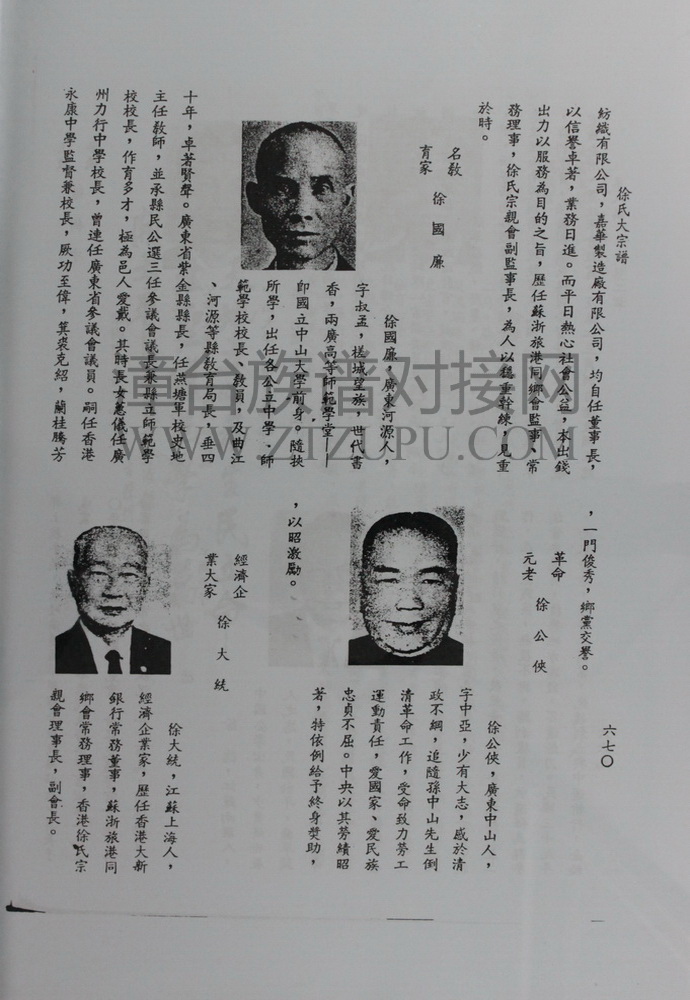 徐氏大宗譜
紡織有限公司，嘉華製造廠有限公司，均自任董事長，
以信譽卓著，業務日進。而平日熱心社會公益，本出錢
出力以服務為目的之旨，歷任蘇浙旅港同鄉會監事、常
務理事，徐氏宗親會副監事長，為人以穩重幹練，見重
於時。
名教
育家
徐國廉
徐國廉，廣東河源人，
字叔孟，槎城望族，世代書
香，兩廣高等師範學堂——
即國立中山大學前身。隨挾
所學，出任各公立中學、師
範學校校長、教員，及曲江
、河源等縣敎育局長，垂四
十年，卓著賢聲。廣東省紫金縣縣長，任燕塘軍校史地
主任敎師，並承縣民公選三任參議會議長兼縣立師範學
校校長，作育多才，極為邑人愛戴。其時長女蕙儀任廣
州力行中學校長，曾連任廣東省參議會議員。嗣任香港
永康中學監督兼校長，厥功至偉，箕裘克紹，蘭桂騰芳
，一門俊秀，鄉黨交譽。
革命
元老
徐公俠
徐公俠，廣東中山人，
字中亞，少有大志，感於清
政不綱，追隨孫中山先生倒
清革命工作，受命致力勞工
運動責任，愛國家、愛民族
忠貞不屈。中央以其勞績昭
著，特依例給予終身獎助，
，以昭激勵。
經濟企
業大家
徐大統
徐大統，江蘇上海人，
經濟企業家，歷任香港大新
銀行常務董事，蘇浙旅港同
鄉會常務理事，香港徐氏宗
親會理事長，副會長。
六七〇
尋根族谱对接网
WWW.ZTZUPU.COM